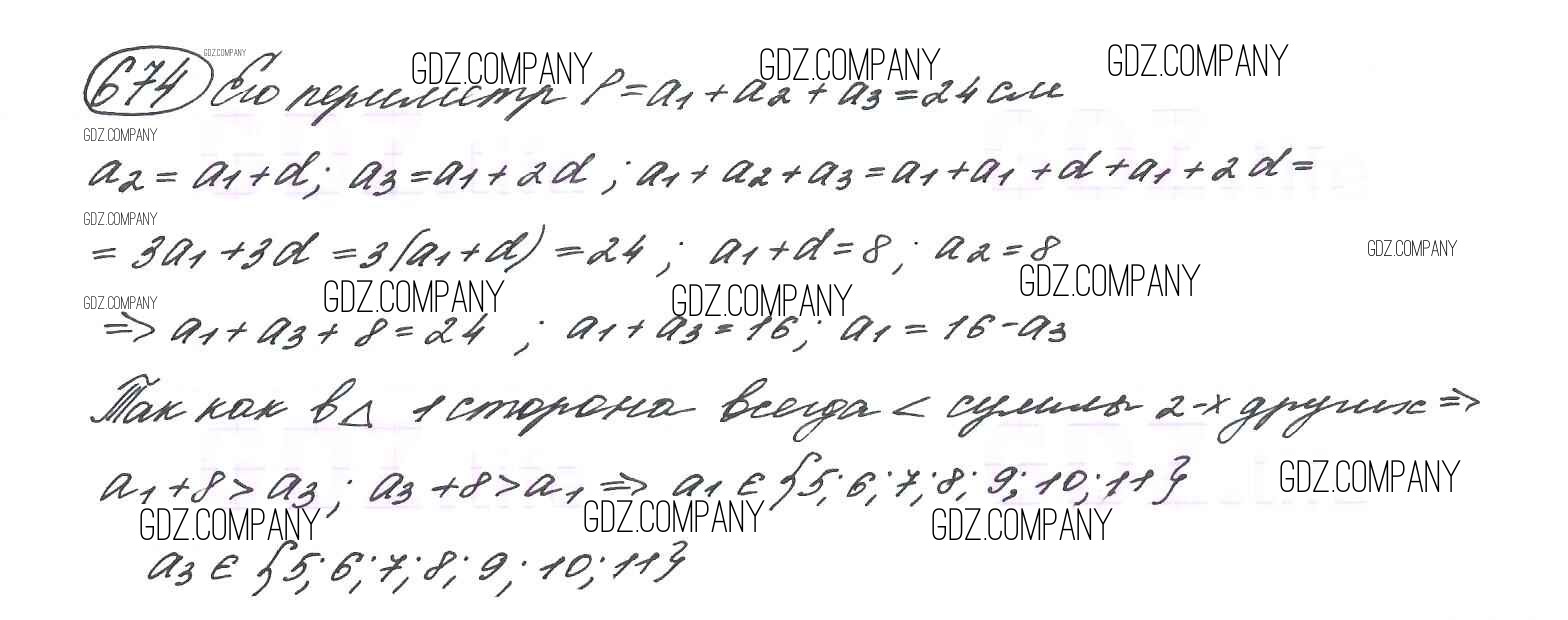 GDZ.COMPANY
674 Его периметр P = a1 + a2 + a3 = 24 см
GDZ.COMPANY GDZ.COMPANY GDZ.COMPANY
GDZ.COMPANY
a2 = a1 + d; a3 = a1 + 2d ; a1 + a2 + a3 = a1 + a1 + d + a1 + 2d =
GDZ.COMPANY
= 3a1 + 3d = 3(a1 + d) = 24 ; a1 + d = 8 ; a2 = 8
GDZ.COMPANY
GDZ.COMPANY GDZ.COMPANY GDZ.COMPANY GDZ.COMPANY
=> a1 + a3 + 8 = 24 ; a1 + a3 = 16; a1 = 16 - a3
Так как в △ 1 сторона всегда < суммы 2-х других =>
a1 + 8 > a3 ; a3 + 8 > a1 => a1 ∈ {5; 6; 7; 8; 9; 10; 11}
GDZ.COMPANY
GDZ.COMPANY GDZ.COMPANY GDZ.COMPANY
a3 ∈ {5; 6; 7; 8; 9; 10; 11}